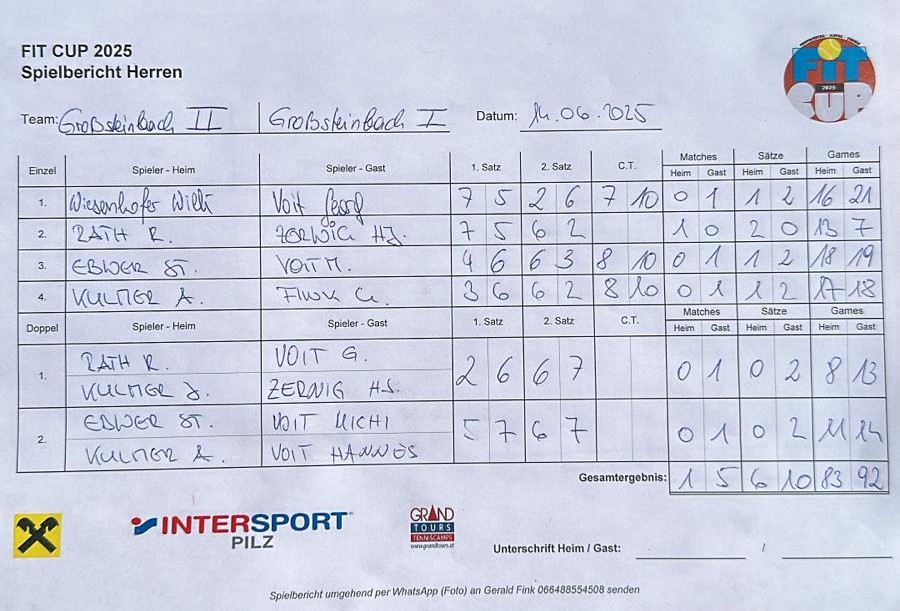 FIT CUP 2025
Spielbericht Herren
FIT CUP 2025
Team: Großsteinbach II Großsteinbach I Datum: 14.06.2025
Einzel Spieler - Heim Spieler - Gast 1. Satz 2. Satz C.T. Matches Sätze Games
Heim Gast Heim Gast Heim Gast
1. Wiesenhofer Willi Voit Georg 7 5 2 6 7 10 0 1 1 2 16 21
2. RATH R. HJ. 7 5 6 2 1 0 2 0 13 7
3. EBNER ST. VOIT M. 4 6 6 3 8 10 0 1 1 2 18 19
4. KULMER A. FINK G. 3 6 6 2 8 10 0 1 1 2 17 18
Doppel Spieler - Heim Spieler - Gast 1. Satz 2. Satz C.T. Matches Sätze Games
Heim Gast Heim Gast Heim Gast
1. RATH R. VOIT G. 2 6 6 7 0 1 0 2 8 13
KULMER J. ZERNIG HJ.
2. EBNER ST. VOIT MICHI 5 7 6 7 0 1 0 2 11 14
KULMER A. VOIT HANNES
Gesamtergebnis: 1 5 6 10 83 92
INTERSPORT
PILZ
GRAND
TOURS
TENNISCAMPS
www.grandtours.at
Unterschrift Heim / Gast: /
Spielbericht umgehend per WhatsApp (Foto) an Gerald Fink 066488554508 senden